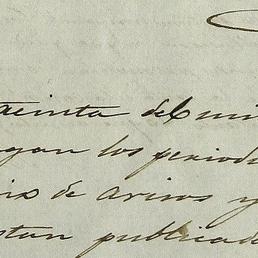 treinta del mi
gan los periodi
rio de avisos y
stan publicado